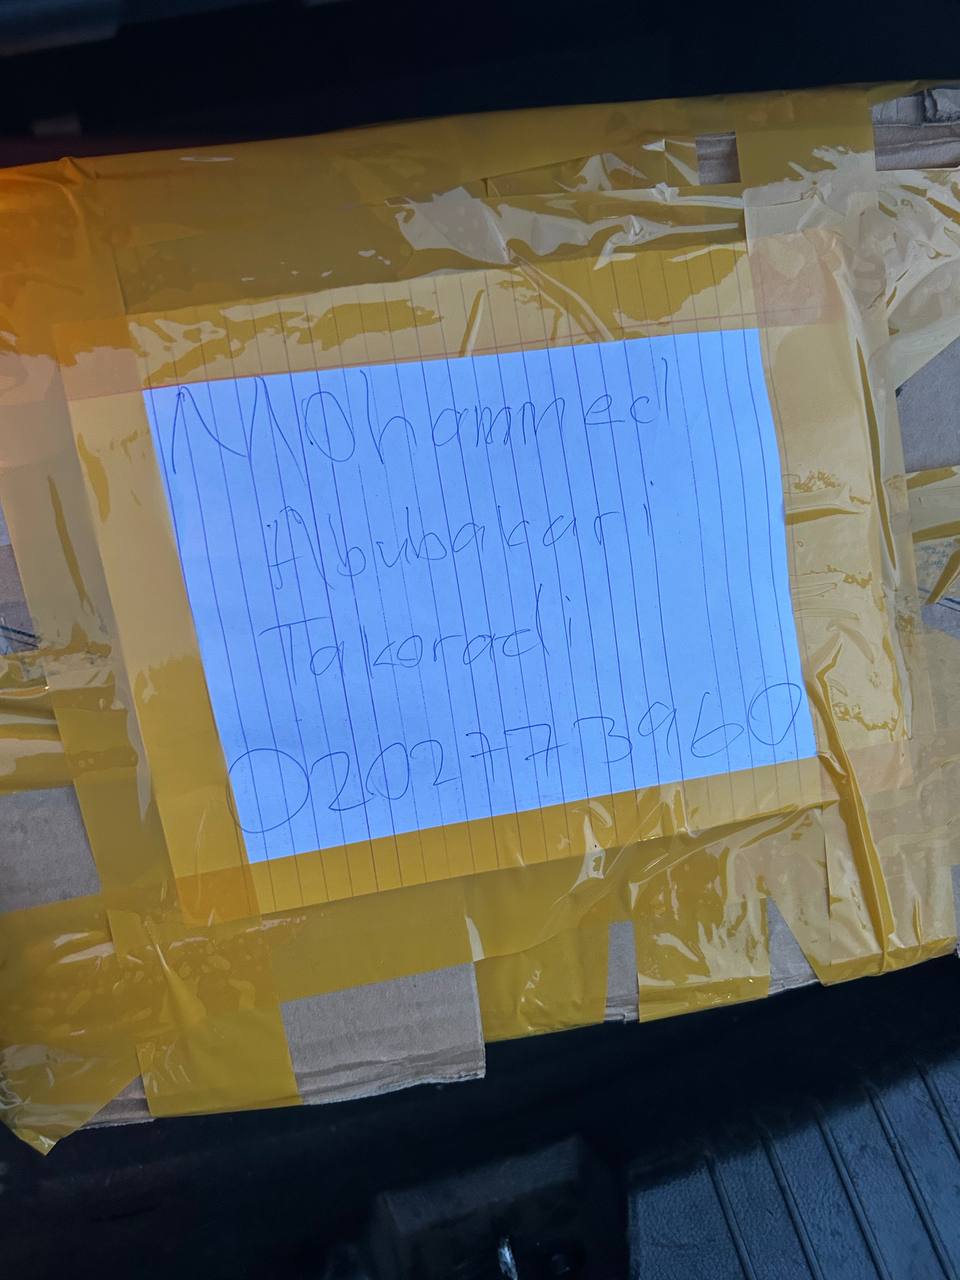 Mohammed
Abubakari
Takoradi
0202773960